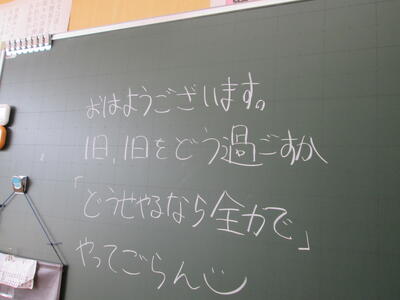 おはようございます。
1日,1日をどう過ごすか
「どうせやるなら全力で」
やってごらん